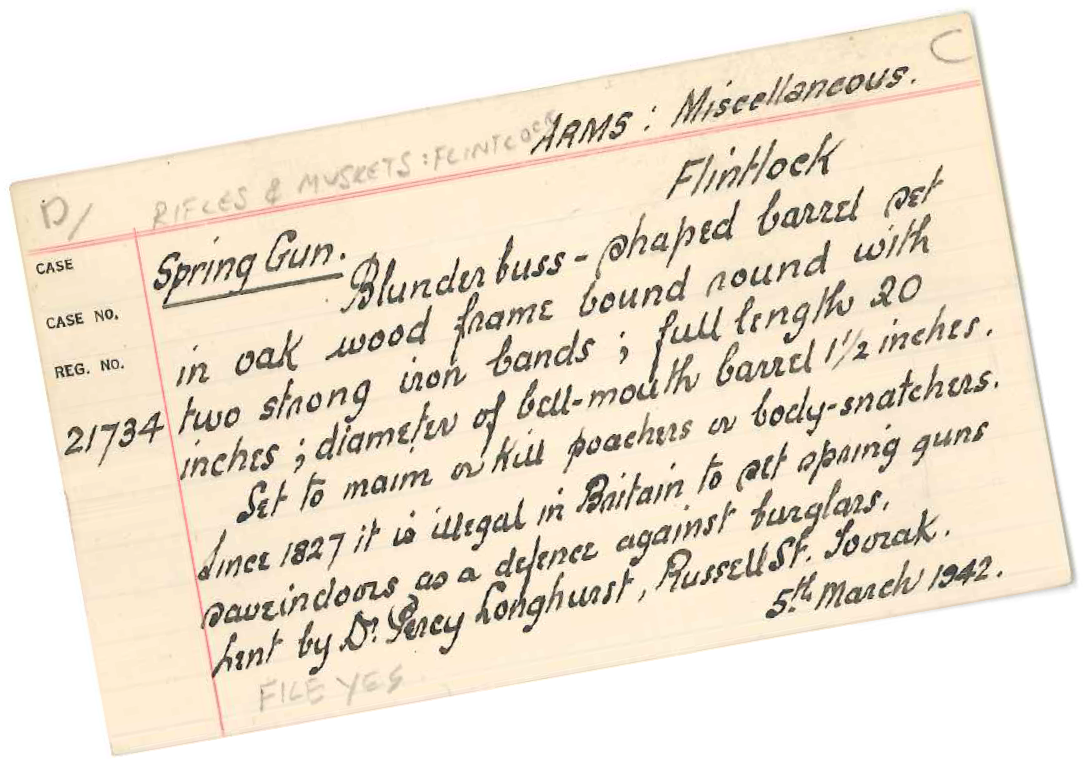 C
ARMS : Miscellaneous.
D/ RIFLES & MUSKETS : FLINTLOCK
Flintlock
CASE
Spring Gun.
Blunderbuss - shaped barrel set
CASE NO.
in oak wood frame bound round with
REG. NO.
two strong iron bands ; full length 20
21734
inches ; diameter of bell-mouth barrel 1½ inches.
Set to maim or kill poachers or body-snatchers.
Since 1827 it is illegal in Britain to set spring guns
save indoors as a defence against burglars.
Lent by Dr. Percy Longhurst, Russell St. Toorak.
5th March 1942.
FILE YES